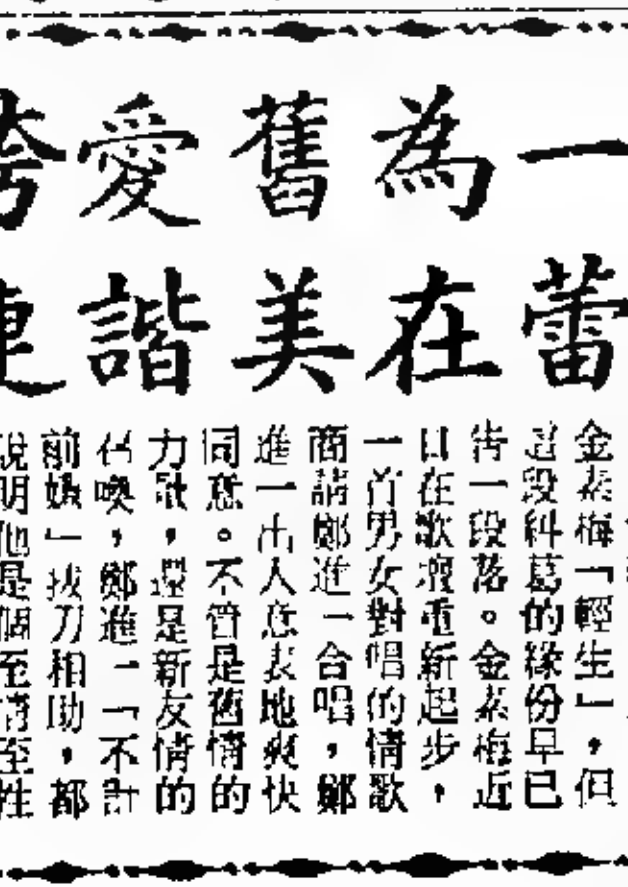 一為舊愛
蕾在美諧連
金素梅「輕生」，但
這段糾葛的緣份早已
告一段落。金素梅近
日在歌壇重新起步，
一首男女對唱的情歌
商請鄭進一合唱，鄭
進一出人意表地爽快
同意。不管是舊情的
力歌，還是新友情的
召喚，鄭進一「不計
前嫌」拔刀相助，都
說明他是個至情至性